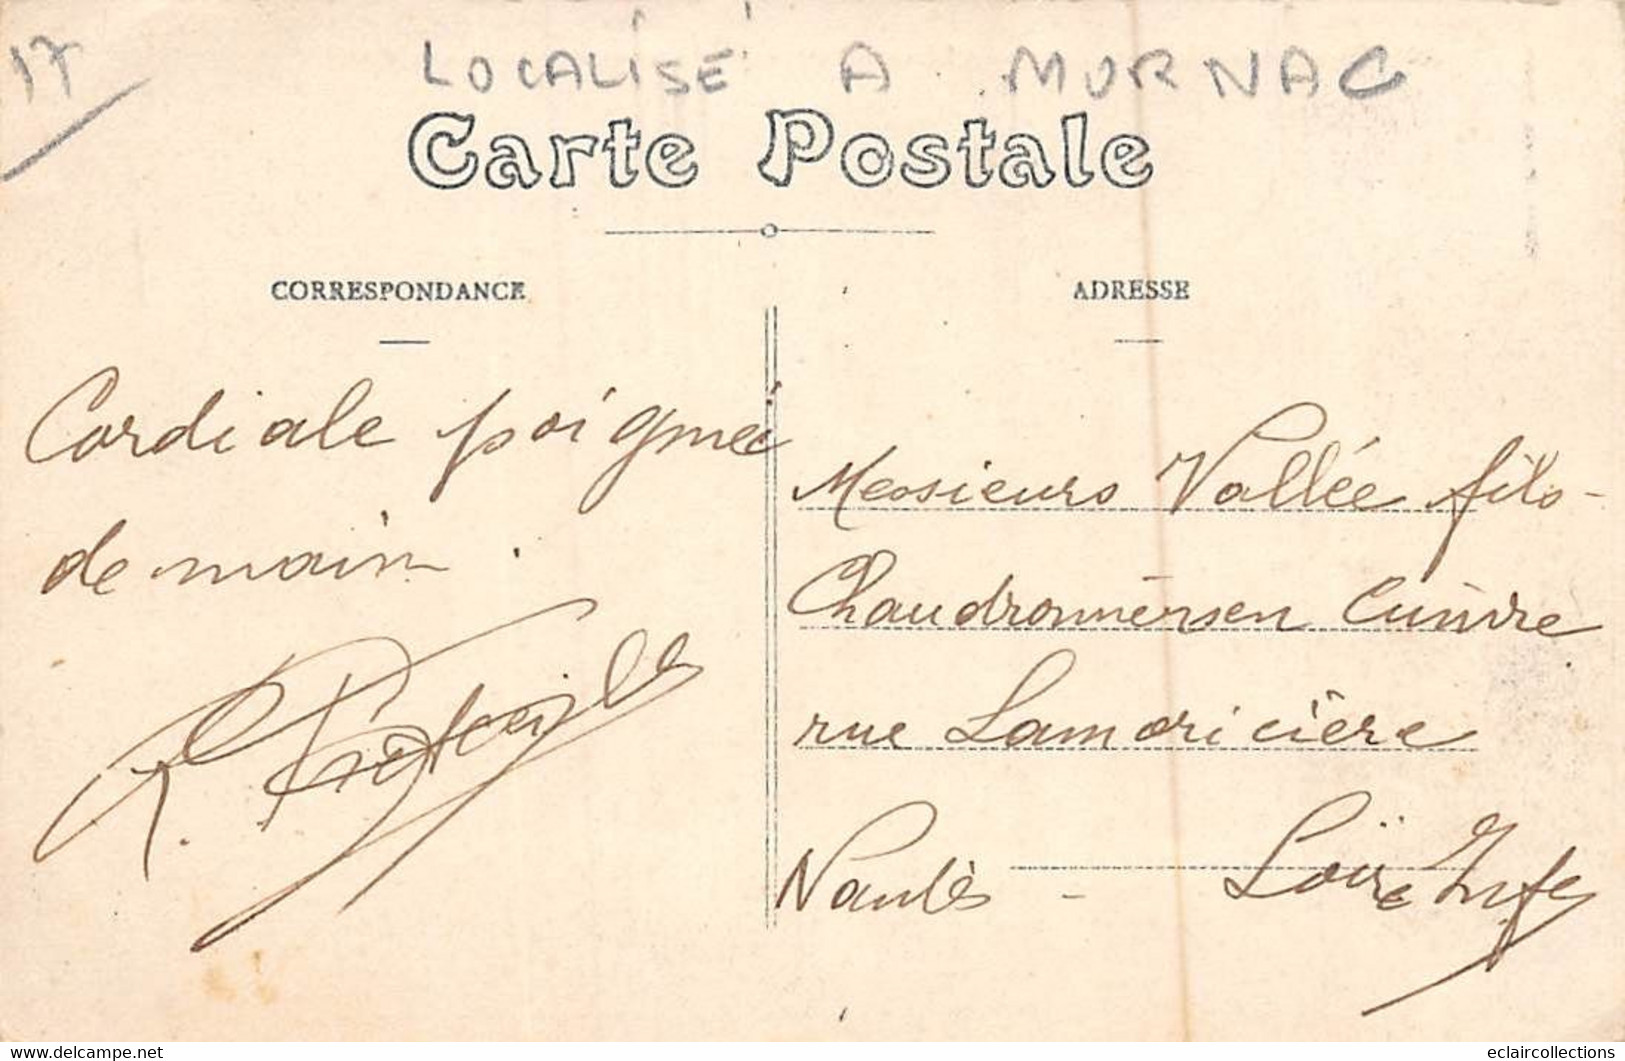 17
LOCALISÉ A MORNAC
Carte Postale
CORRESPONDANCE
ADRESSE
Cordiale poignée
de main.
Messieurs Vallée fils-
Chaudronniers en Cuivre
rue Lamoricière
Nantes - Loire Infe
eclaircollections